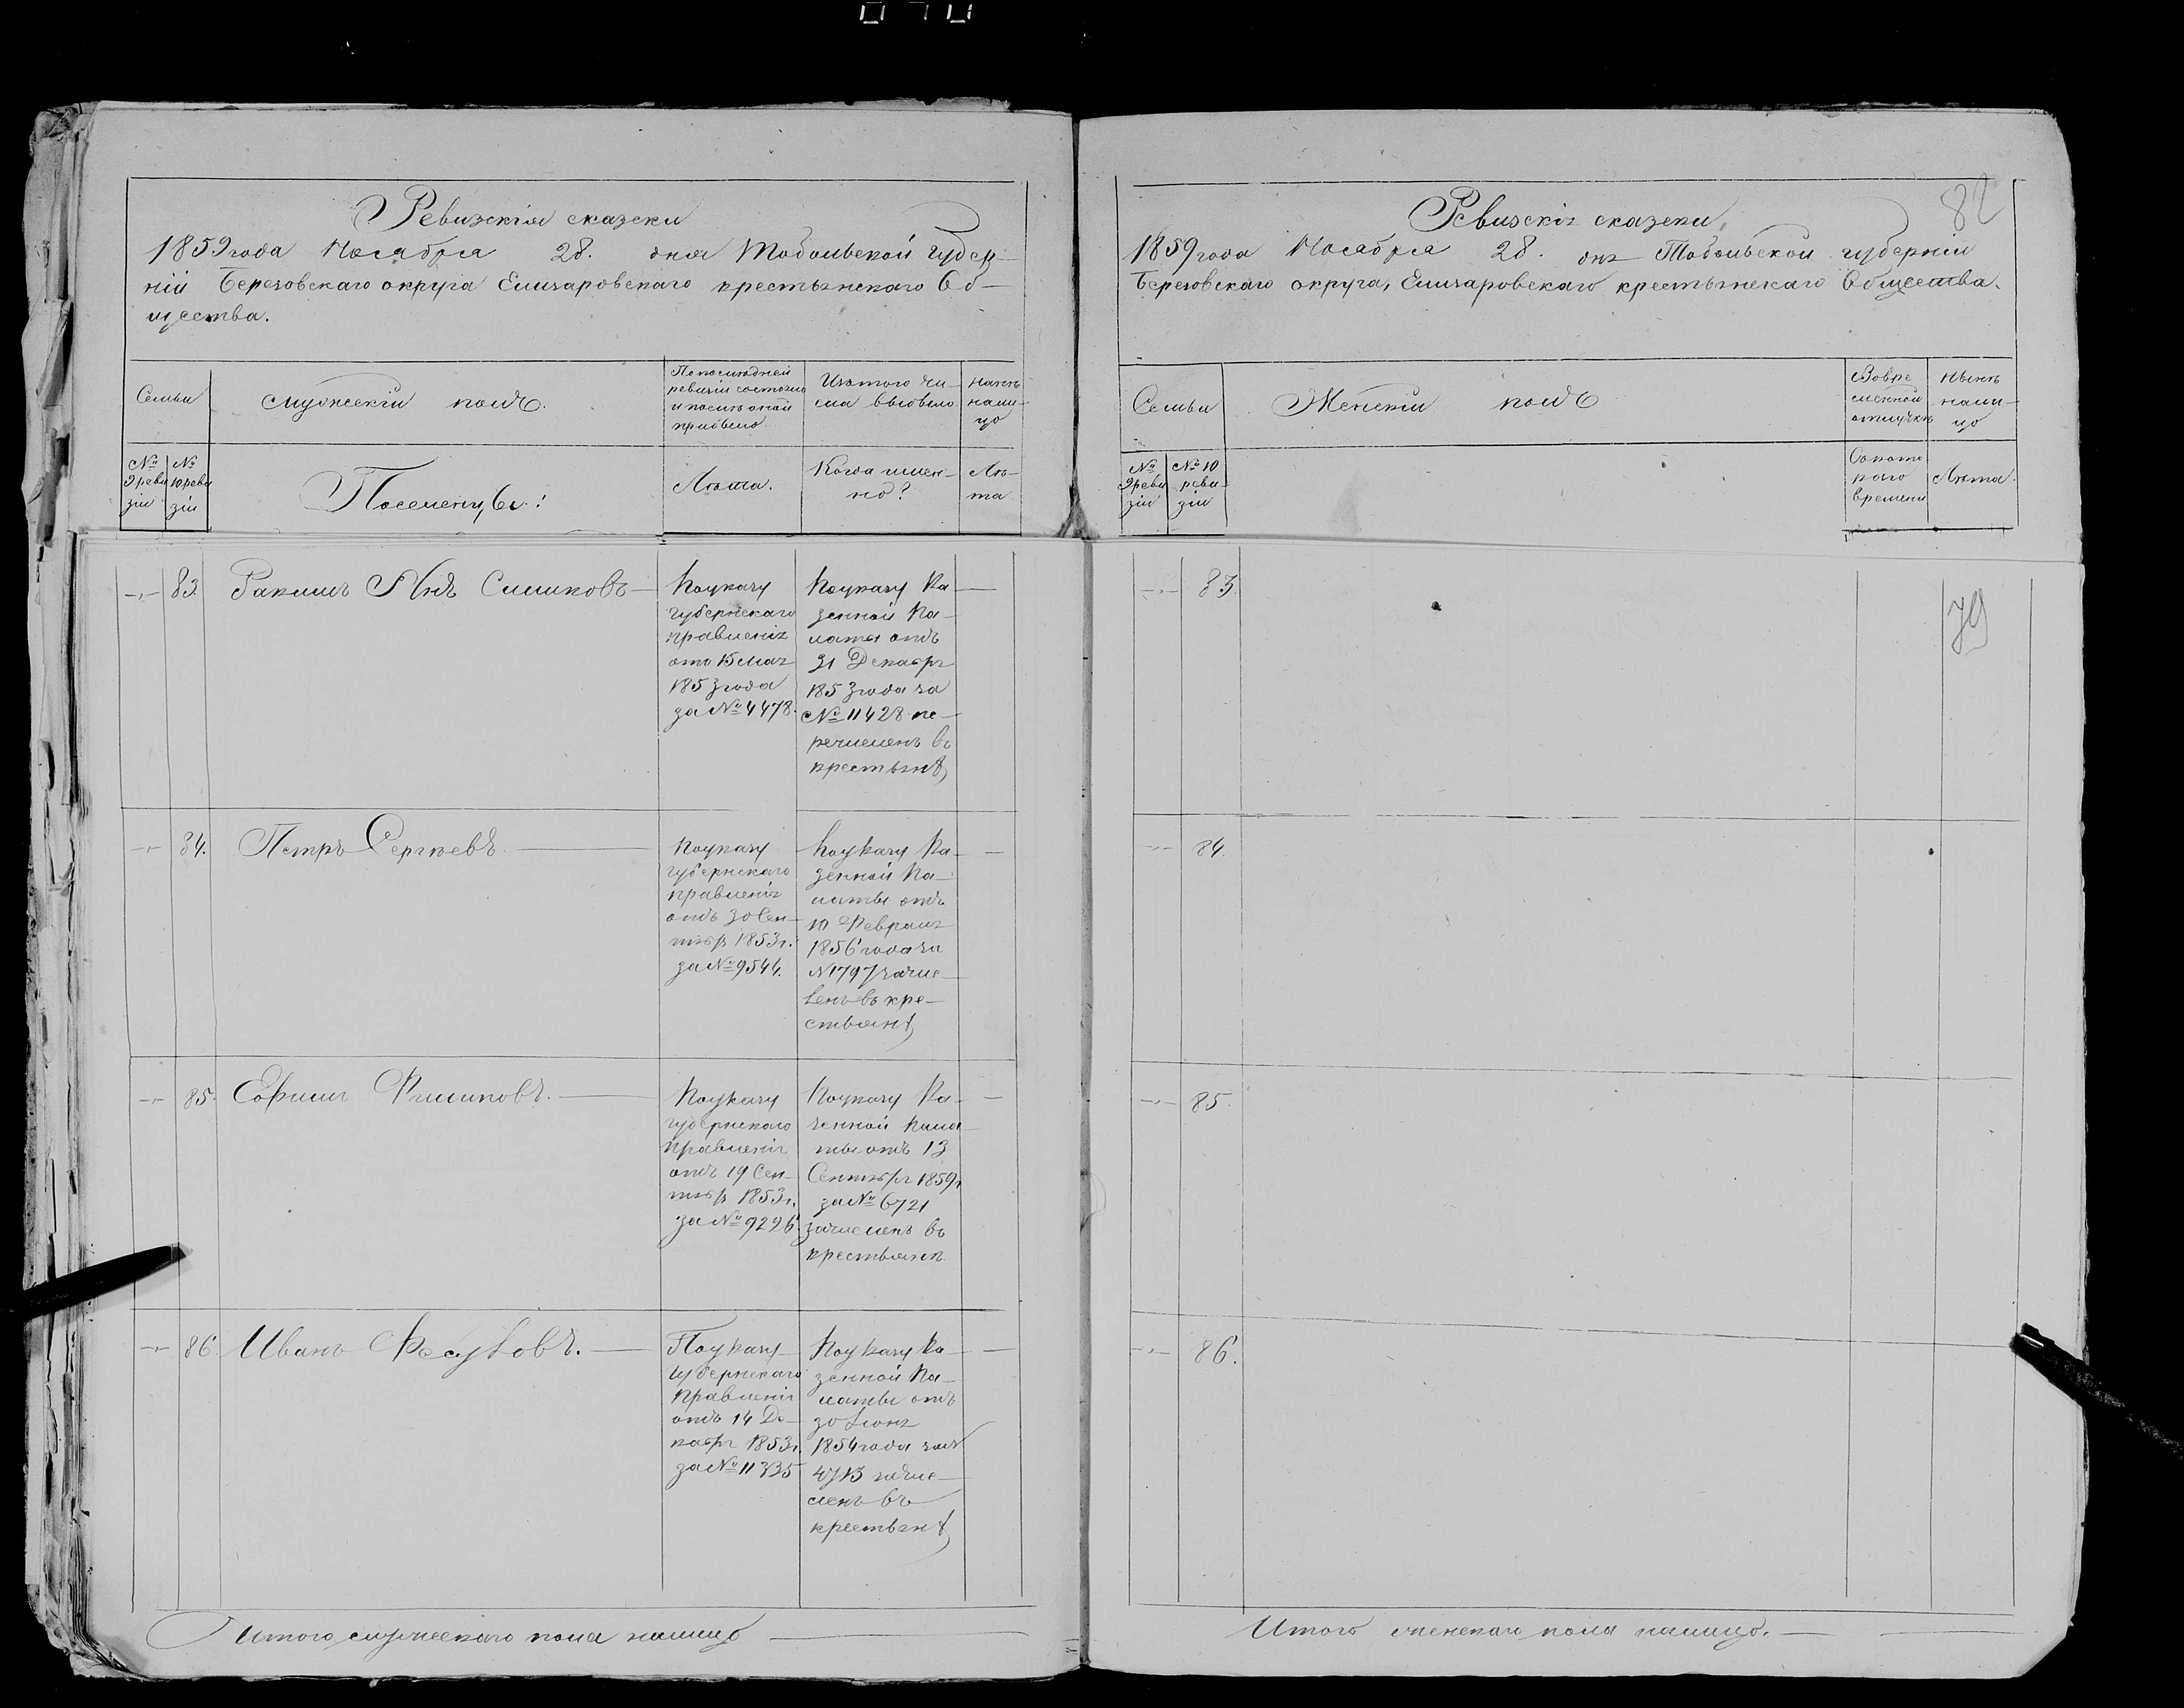 Ревизскія сказски
1859 года Ноября 28. дня Тобольской губер-
ніи Березовскаго округа Елизаровскаго крестьянскаго Об-
щества.
Семьи
Мужескій полъ.
По последней
ревизіи состояло
и после оной
прибыло
Изъ того чи-
сла выбыло
ныне
нали-
цо
№ 9 реви
зіи
№ 10 реви
зіи
Поселенцы:
Лѣта.
Когда имен-
но?
Лѣ-
та
83. Петръ Симиковъ
По указу
губернскаго
правленія
отъ 15 Мая
1853 года
за № 4478.
По указу Ка-
зенной Па-
латы отъ
31 Декабря
1853 года за
№ 11428 пе-
речисленъ въ
крестьяне
84. Петръ Сергѣевъ
По указу
губернскаго
правленія
отъ 30 Сен-
тяб 1853 г.
за № 9544.
По указу Ка-
зенной Па-
латы отъ
10 Февраля
1856 года за
№ 1797 зачис-
ленъ въ кре-
стьяне
85. Ефимъ Филиповъ.
По указу
губернскаго
правленія
отъ 19 Сен-
тяб 1853 г.
за № 9226
По указу Ка-
зенной Пала-
ты отъ 13
Сентября 1859 г
за № 6721
зачисленъ въ
крестьяне
86 Иванъ
По указу
Губернскаго
Правленія
отъ 14 Де-
кабря 1853 г.
за № 11335
По указу Ка-
зенной Па-
латы отъ
30 Іюня
1854 года за №
4713 зачис-
ленъ въ
крестьяне
Итого мужескаго пола налицо
Ревизскія сказски.
82
1859 года Ноября 28. дня Тобольской губерніи
Березовскаго округа, Елизаровскаго крестьянскаго Общества.
Семьи
Женскій полъ
Во вре
менной
отлучкѣ
ныне
нали-
цо
№
9 реви
зіи
№ 10
реви-
зіи
Съ кото
раго
времени
Лѣта.
83.
79
84.
85.
86.
Итого женскаго пола налицо.